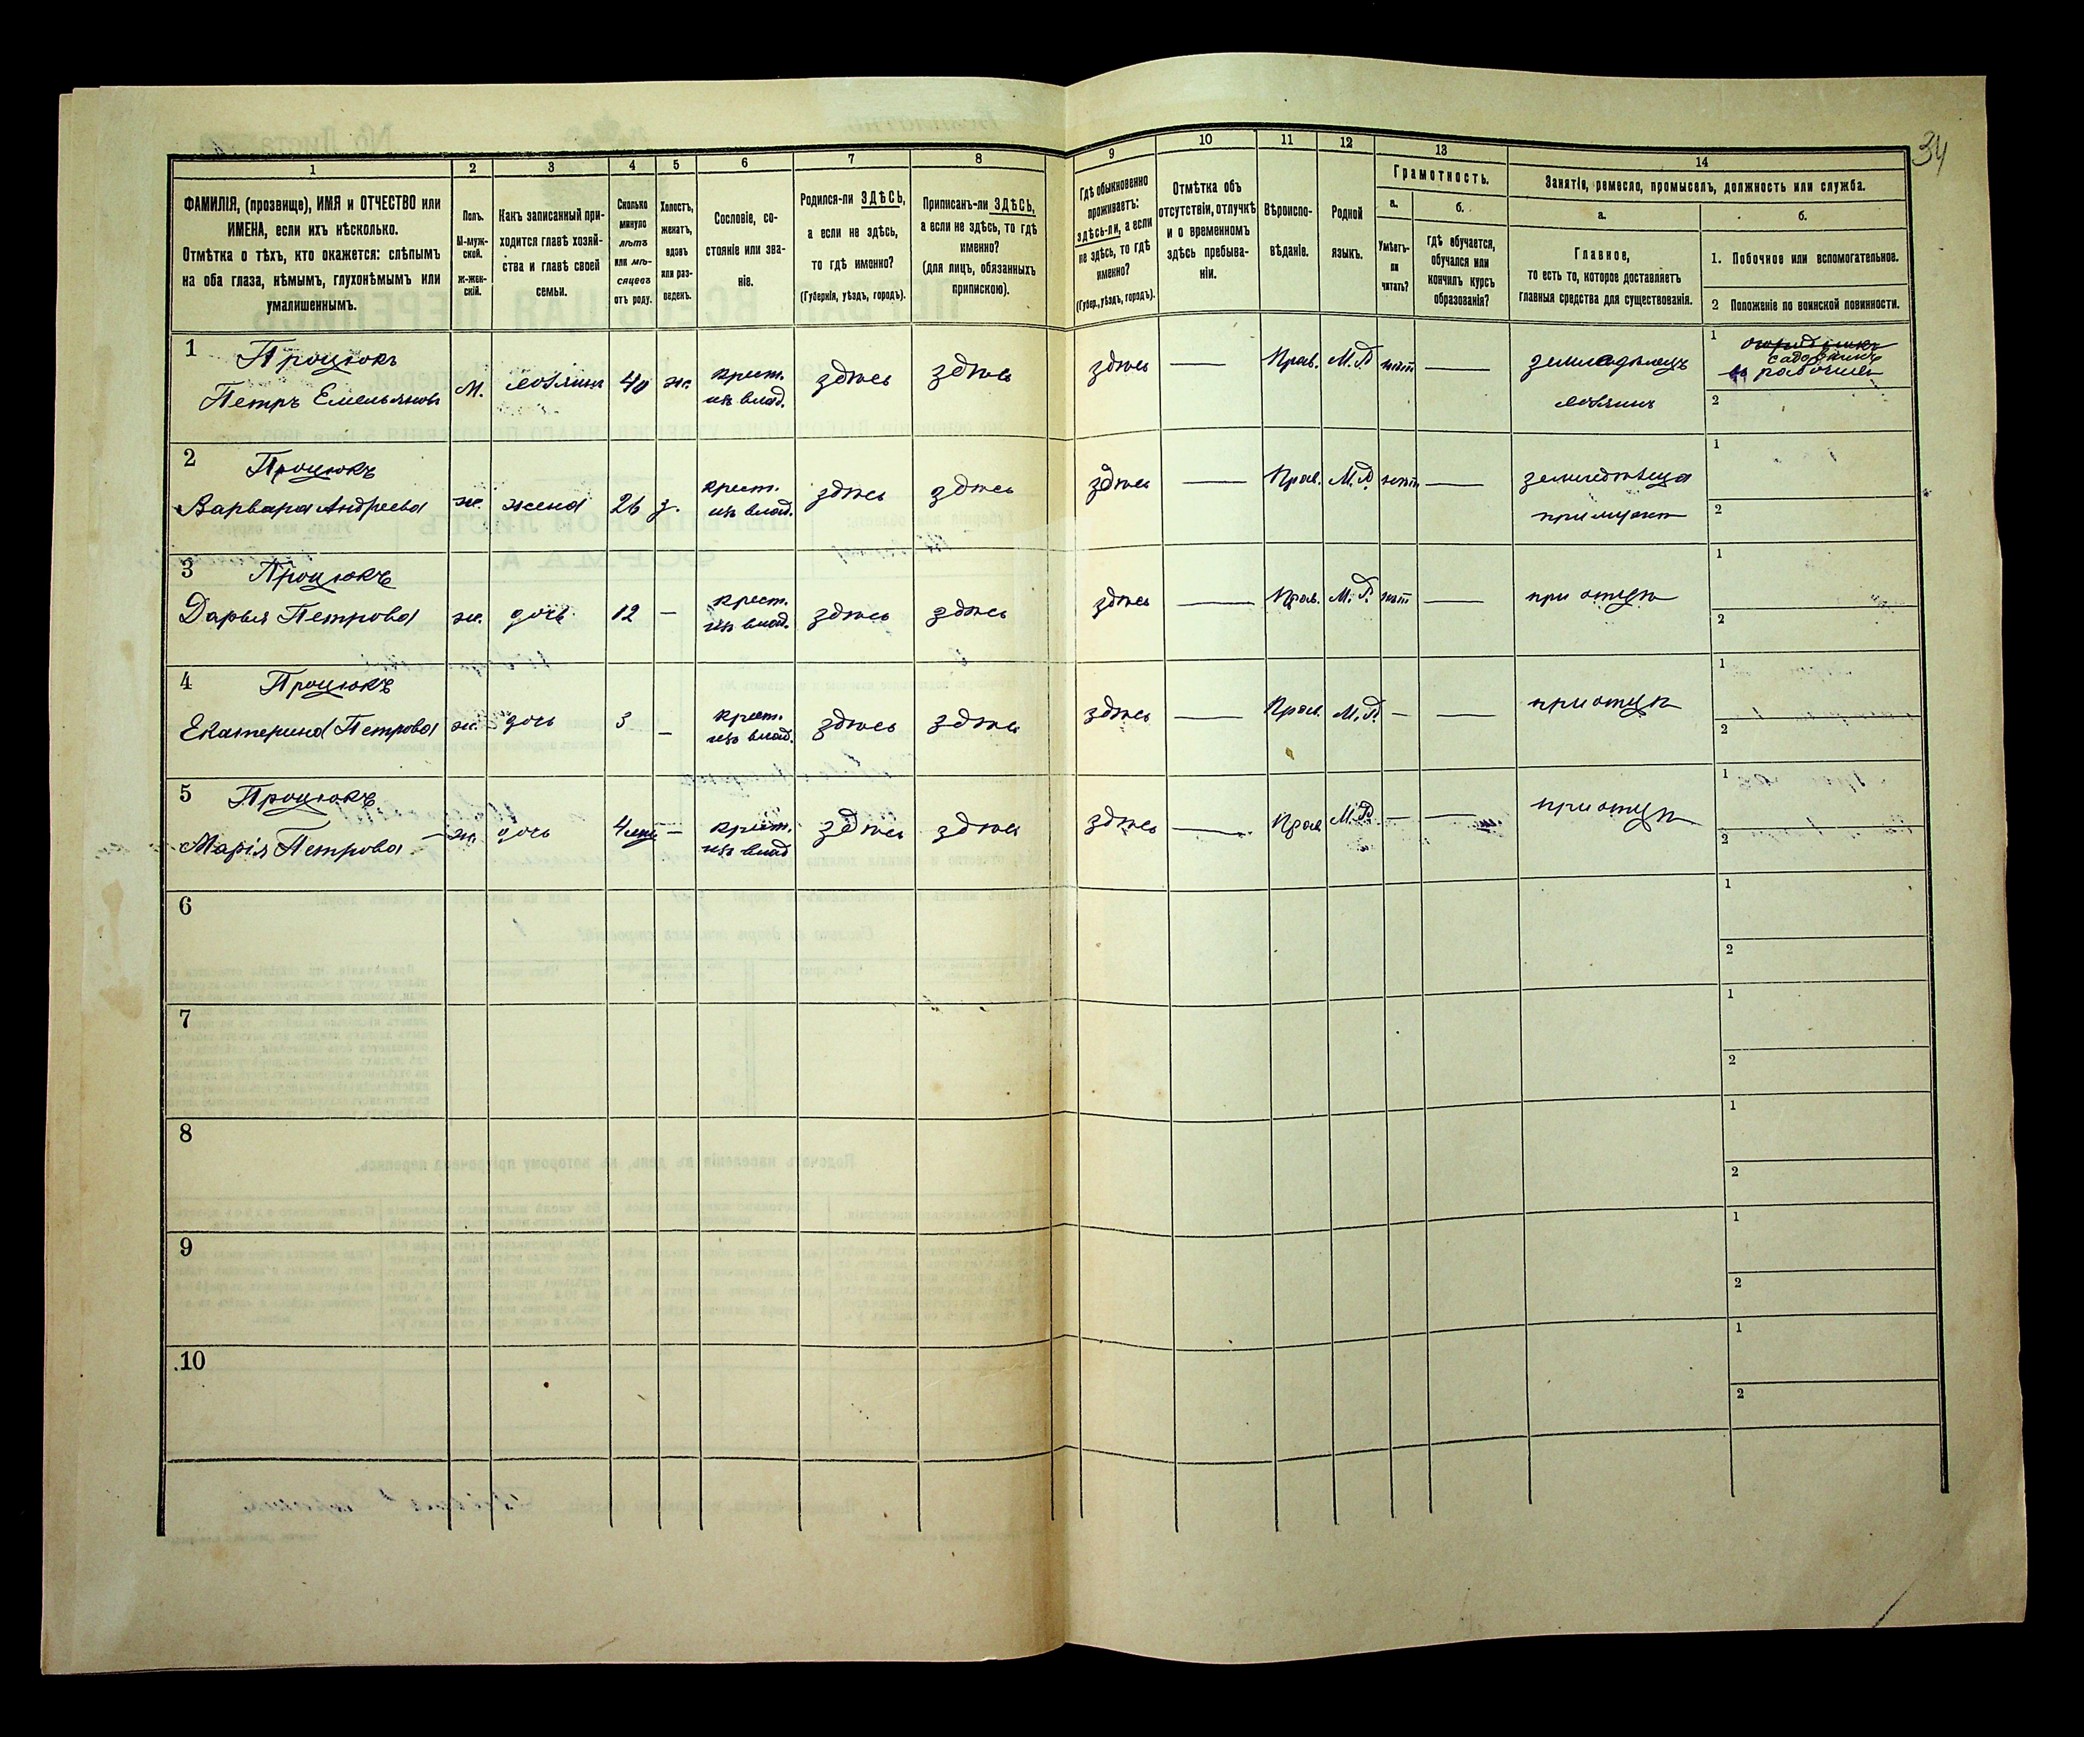 34
1 2 3 4 5 6 7 8 9 10 11 12 13 14
ФАМИЛІЯ, (прозвище), ИМЯ и ОТЧЕСТВО или
ИМЕНА, если ихъ нѣсколько.
Отмѣтка о тѣхъ, кто окажется: слѣпымъ
на оба глаза, нѣмымъ, глухонѣмымъ или
умалишеннымъ.
Полъ.
М-муж-
ской.
Ж-жен-
скій.
Какъ записанный при-
ходится главѣ хозяй-
ства и главѣ своей
семьи.
Сколько
минуло
лѣтъ
или мѣ-
сяцевъ
отъ роду.
Холостъ,
женатъ,
вдовъ
или раз-
веденъ.
Сословіе, со-
стояніе или зва-
ніе.
Родился-ли ЗДѢСЬ,
а если не здѣсь,
то гдѣ именно?
(Губернія, уѣздъ, городъ).
Приписанъ-ли ЗДѢСЬ,
а если не здѣсь, то гдѣ
именно?
(для лицъ, обязанныхъ
припискою).
Гдѣ обыкновенно
проживаетъ:
здѣсь-ли, а если
не здѣсь, то гдѣ
именно?
(Губер., уѣздъ, городъ).
Отмѣтка объ
отсутствіи, отлучкѣ
и о временномъ
здѣсь пребыва-
ніи.
Вѣроиспо-
вѣданіе.
Родной
языкъ.
Грамотность.
а.
Умѣетъ-
ли
читать?
б.
Гдѣ обучается,
обучался или
кончилъ курсъ
образованія?
Занятіе, ремесло, промыселъ, должность или служба.
а.
Главное,
то есть то, которое доставляетъ
главныя средства для существованія.
б.
1. Побочное или вспомогательное.
2 Положеніе по воинской повинности.
1 Процюкъ
Петръ Емельяновъ М. хозяинъ 40 ж. крест. здѣсь здѣсь здѣсь — Прав. М.Р. нѣтъ — земледѣлецъ
из влад. хозяинъ
1 садовникъ
рабочій
2
2 Процюкъ
Варвара Андреева ж. жена 26 з. крест. здѣсь здѣсь здѣсь — Прав. М.Р. нѣтъ —
из влад. при мужѣ
1
2
3 Процюкъ
Дарья Петрова ж. дочь 12 — крест. здѣсь здѣсь здѣсь — Прав. М.Р. нѣтъ — при отцѣ
из влад.
1
2
4 Процюкъ
Екатерина Петрова ж. дочь 3 — крест. здѣсь здѣсь здѣсь — Прав. М.Р. — — при отцѣ
из влад.
1
2
5 Процюкъ
Марія Петрова — ж. дочь 4 — крест. здѣсь здѣсь здѣсь — Прав М.Р. — — при отцѣ
из влад
1
2
6
1
2
7
1
2
8
1
2
9
1
2
10
1
2